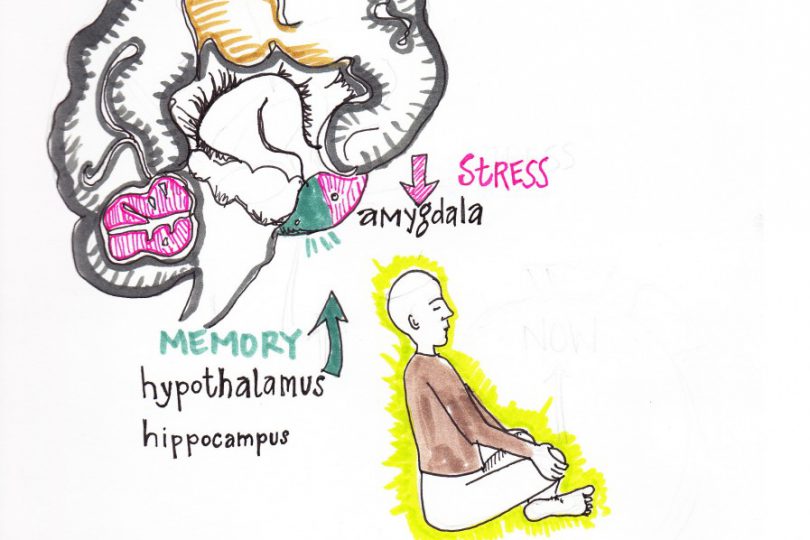 STRESS
amygdala
MEMORY
hypothalamus
hippocampus
NOW